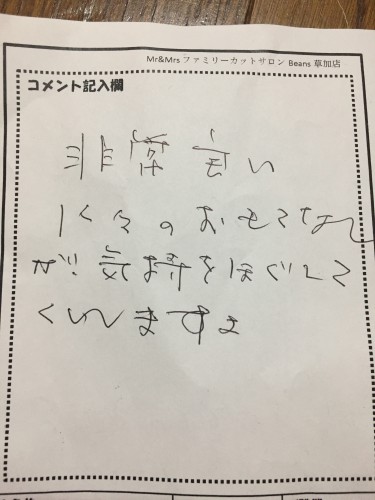 Mr&Mrs ファミリーカットサロン Beans 草加店
コメント記入欄
非常
々のおもてなし
が気持をほぐして
くれますよ